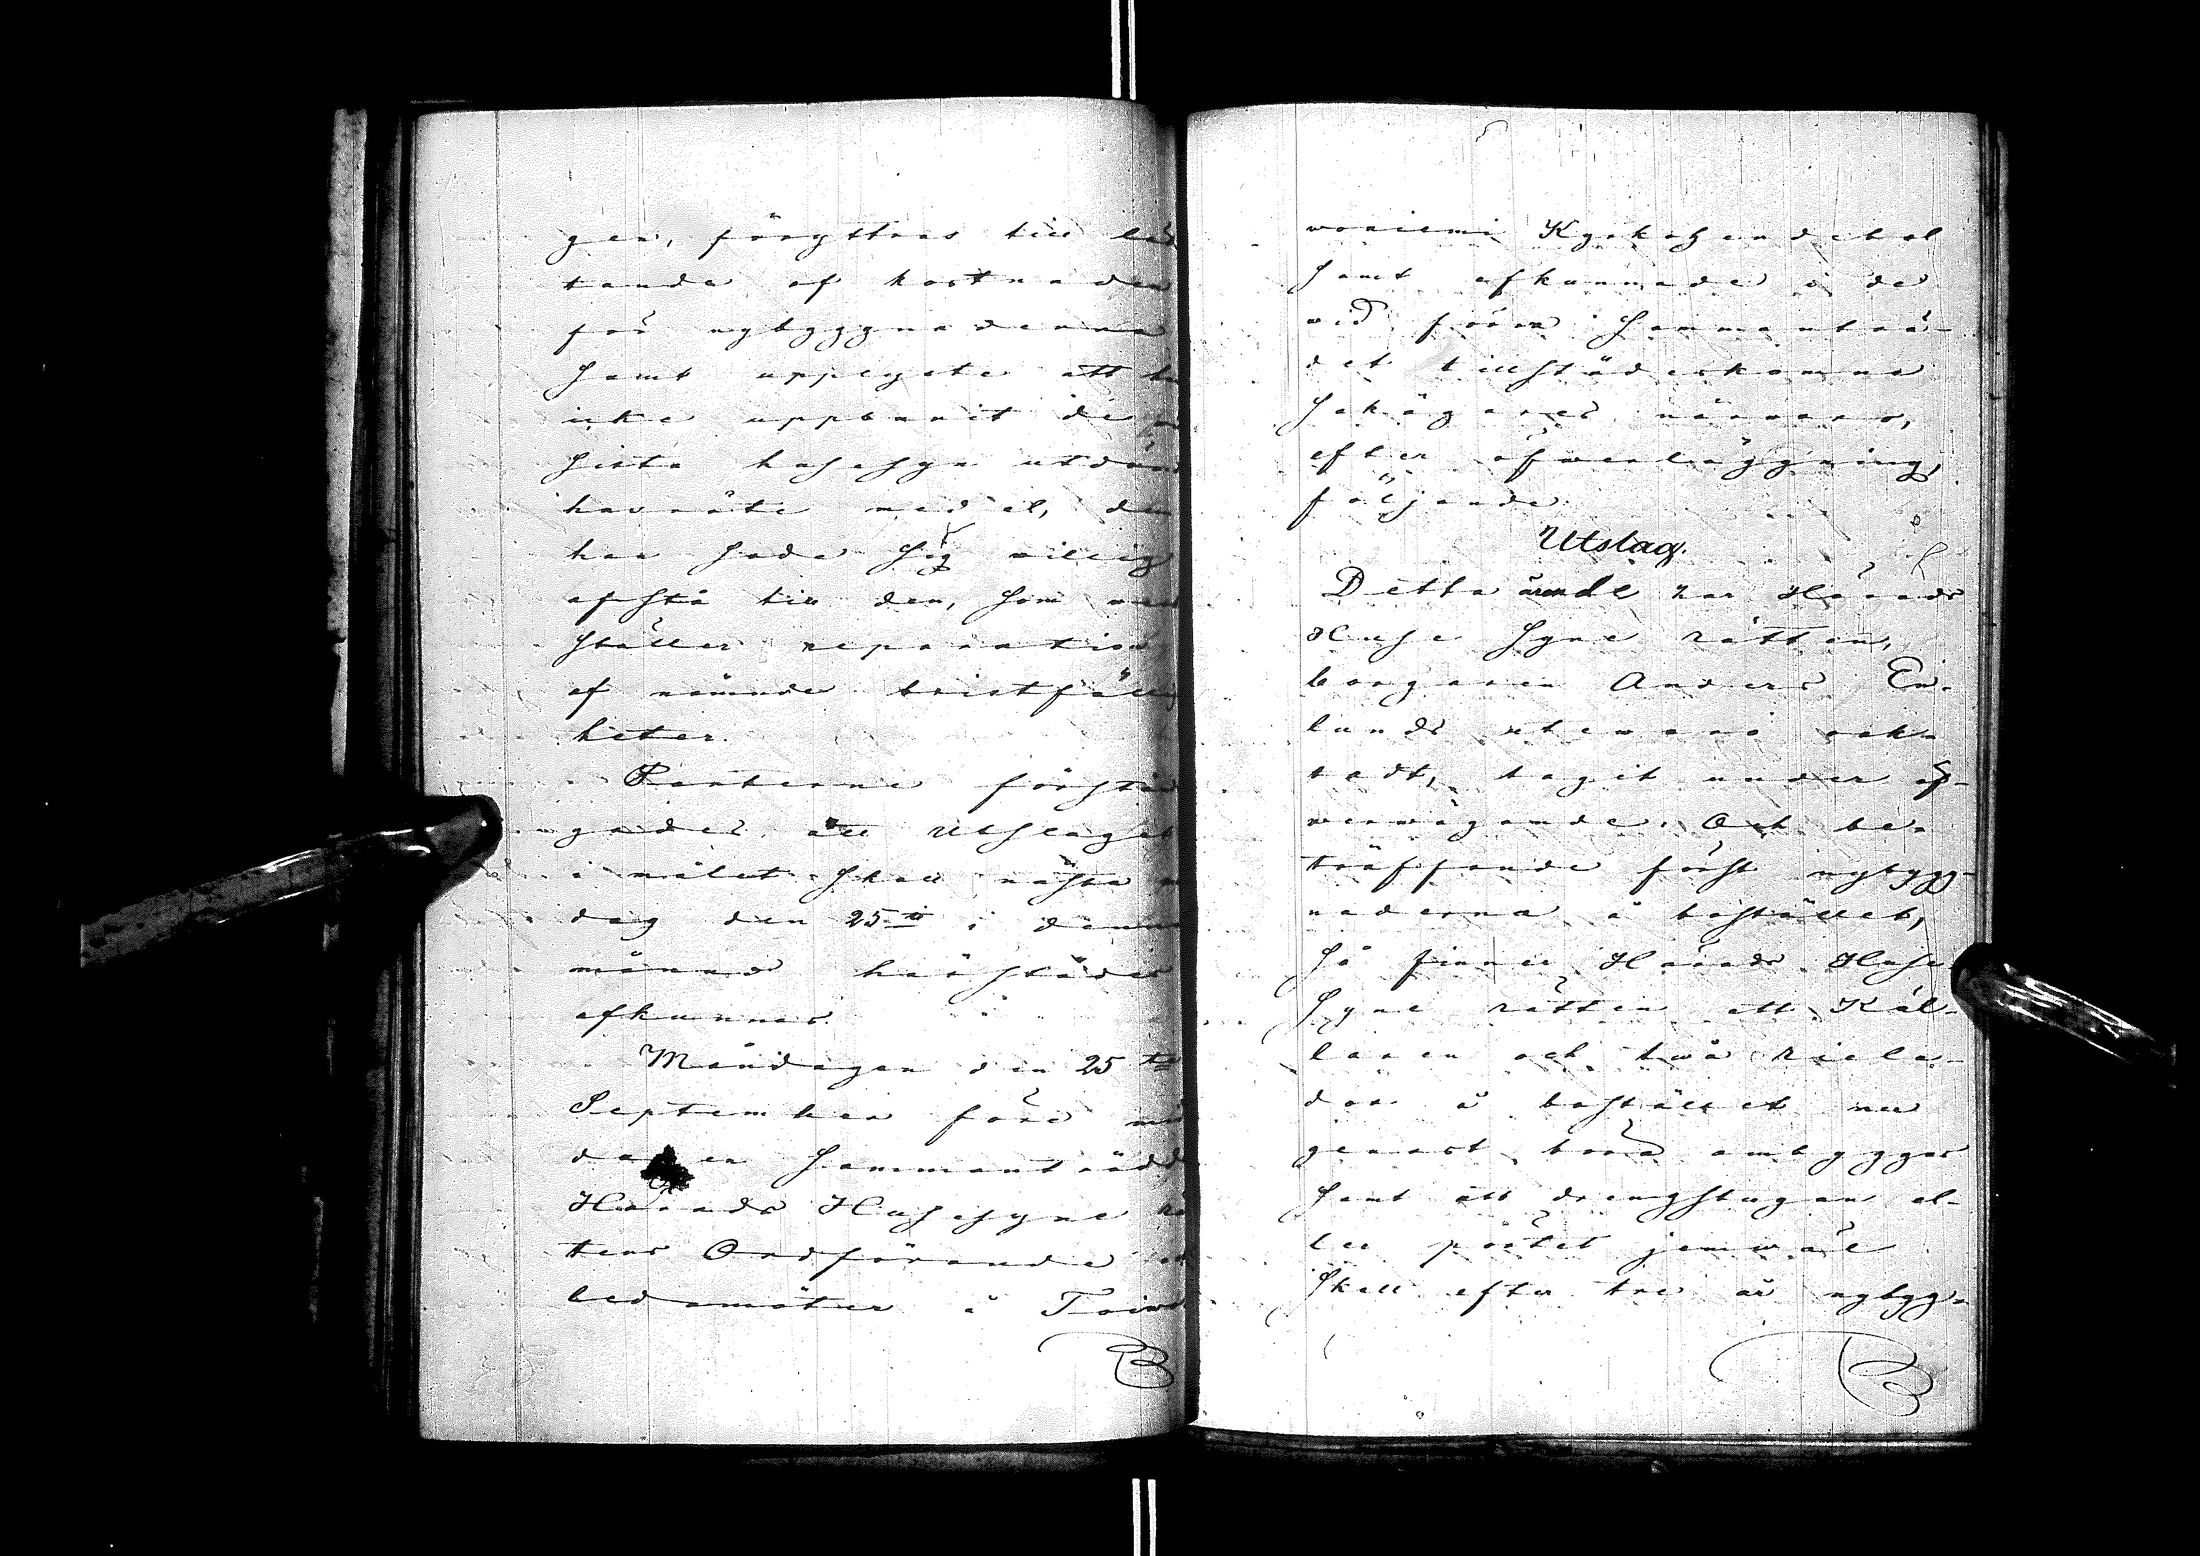 gen, föryttras till läs
tande af kostnaden
för nybyggnaderna
samt upplyste att
icke uppburit de
sista husesyn utdöm
husröte medel, dem
han sade sig villig
afstå till den, som verk
ställer reparation
af nämnde bristfällig
heter.
Parterne försti
gades, att Utslaget
i målet skall nästa m
dag den 25te i denne
månad härstädes
afkunnas.
Måndagen den 25te
September före mid
dagen sammanträdde
Härads Husesyne rä
ttens Ordförande
ledamöter å Toiwo
woniemi Kyrkoherdebol
samt afkunnade i de
wid förra sammanträ-
det tillstädeskomne
sakägares närwaro,
efter öfwerläggning,
följande
Utslag.
Detta ärende har Härads
Huse Syne rätten,
borgaren Anders En-
lunds utewaro oak-
tadt, tagit under öf-
werwägande. Och be-
träffande först nybygg-
naderna å bostället,
så finner Härads Huse
Syne rätten att Käl-
laren och twå riela-
dor å bostället nu
genast böra ombyggas
samt att drengstugan el-
ler pörtet jemwäl
skall efter tre år nybygg-